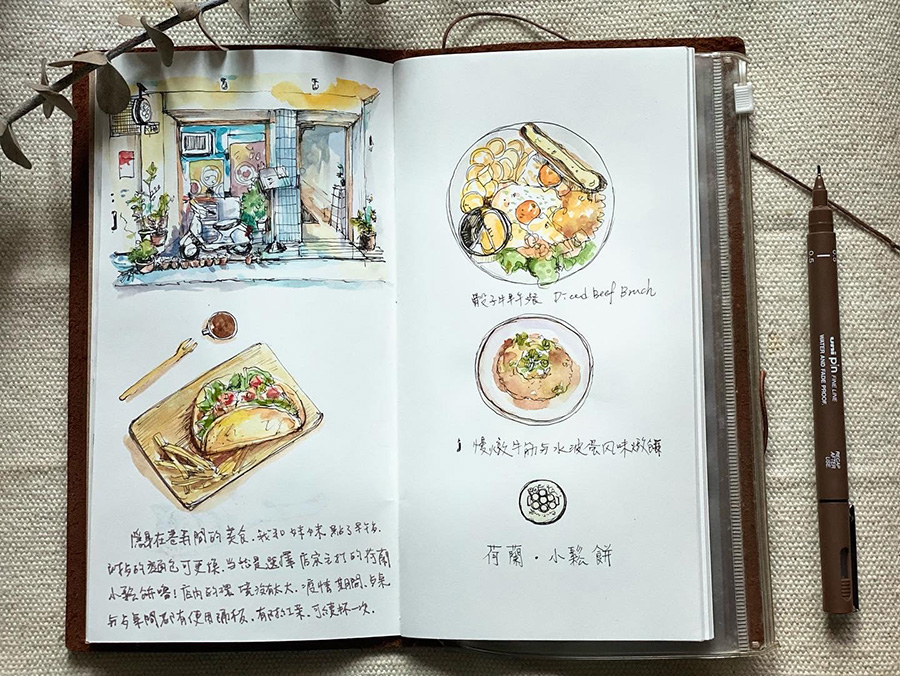 隱身在巷弄間的美食,我和妹妹點了早午餐.
的麵包可更換,當然是選擇店家主打的荷蘭
小鬆餅嚕!店內的環境沒有太大,疫情期間,桌
与桌間都有使用隔板,有附紅茶,可續杯一次.
骰子牛早午餐 Diced Beef Bruch
慢燉牛筋与水波蛋风味燉飯
荷蘭・小鬆餅
uni pin FINE LINE
WATER AND FADE PROOF.
RECAP AFTER USE